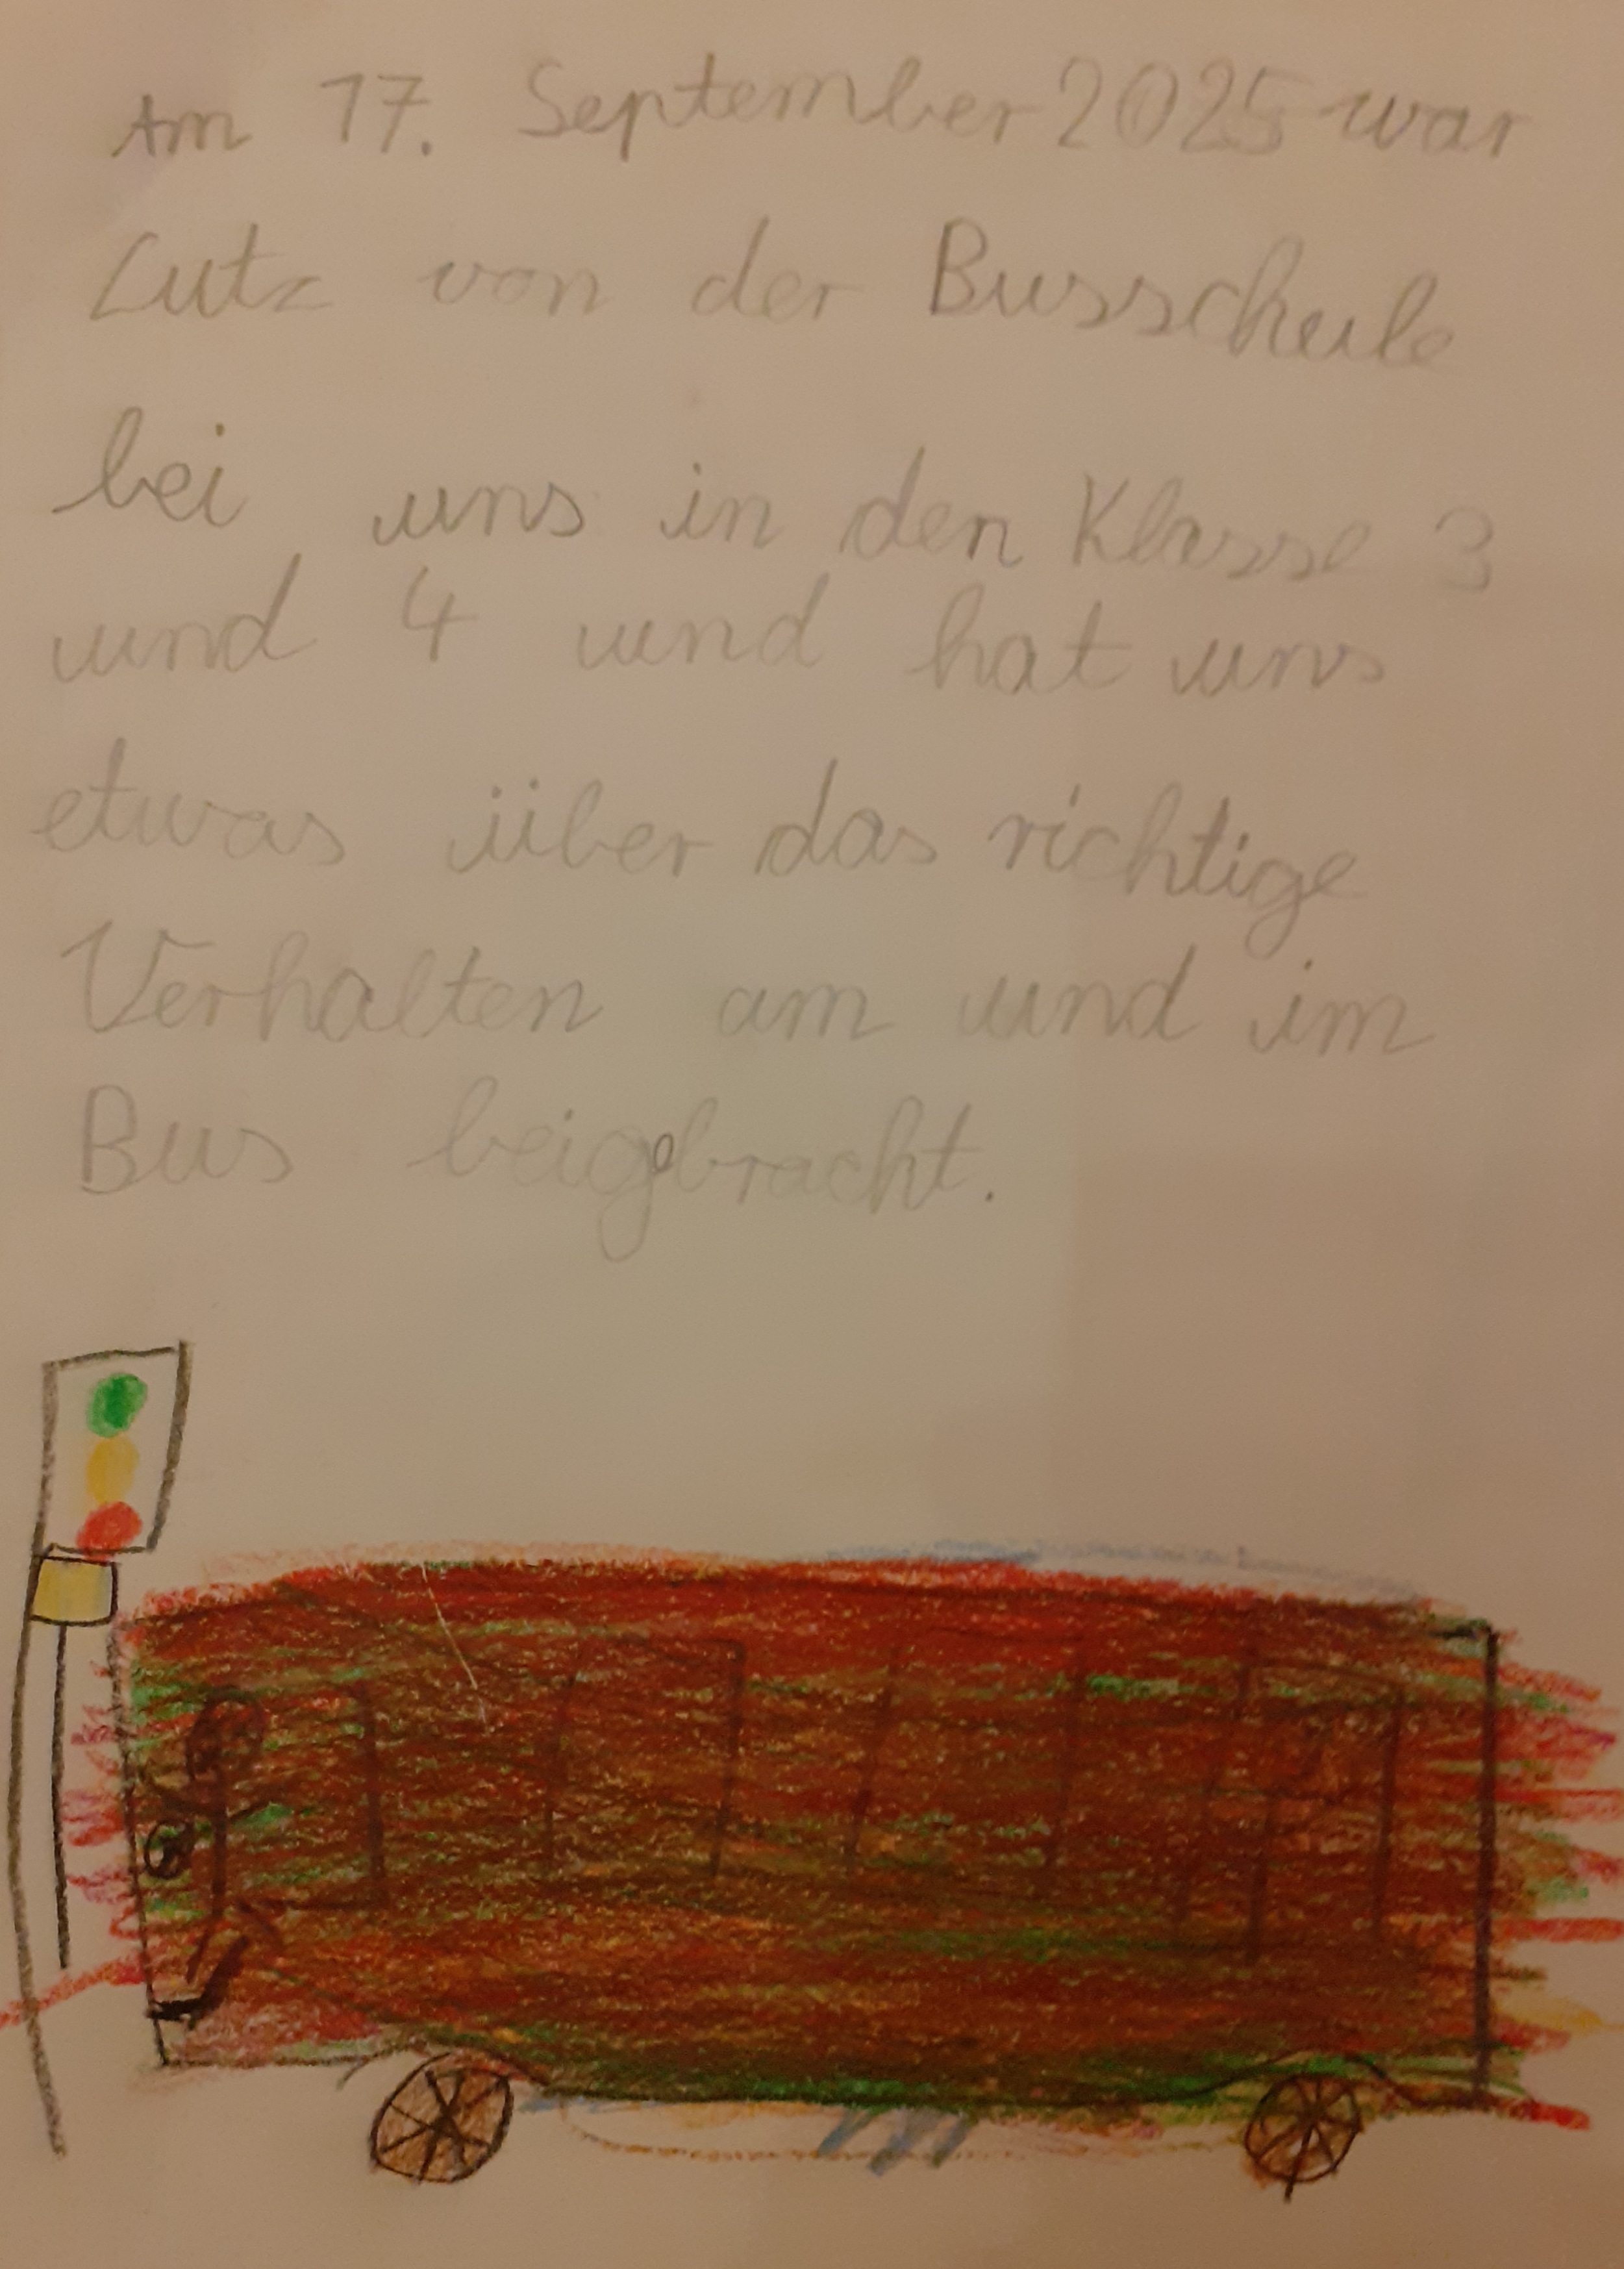 Am 17. September 2025 war
Lutz von der Busschule
bei uns in den Klasse 3
und 4 und hat uns
etwas über das richtige
Verhalten am und im
Bus beigebracht.